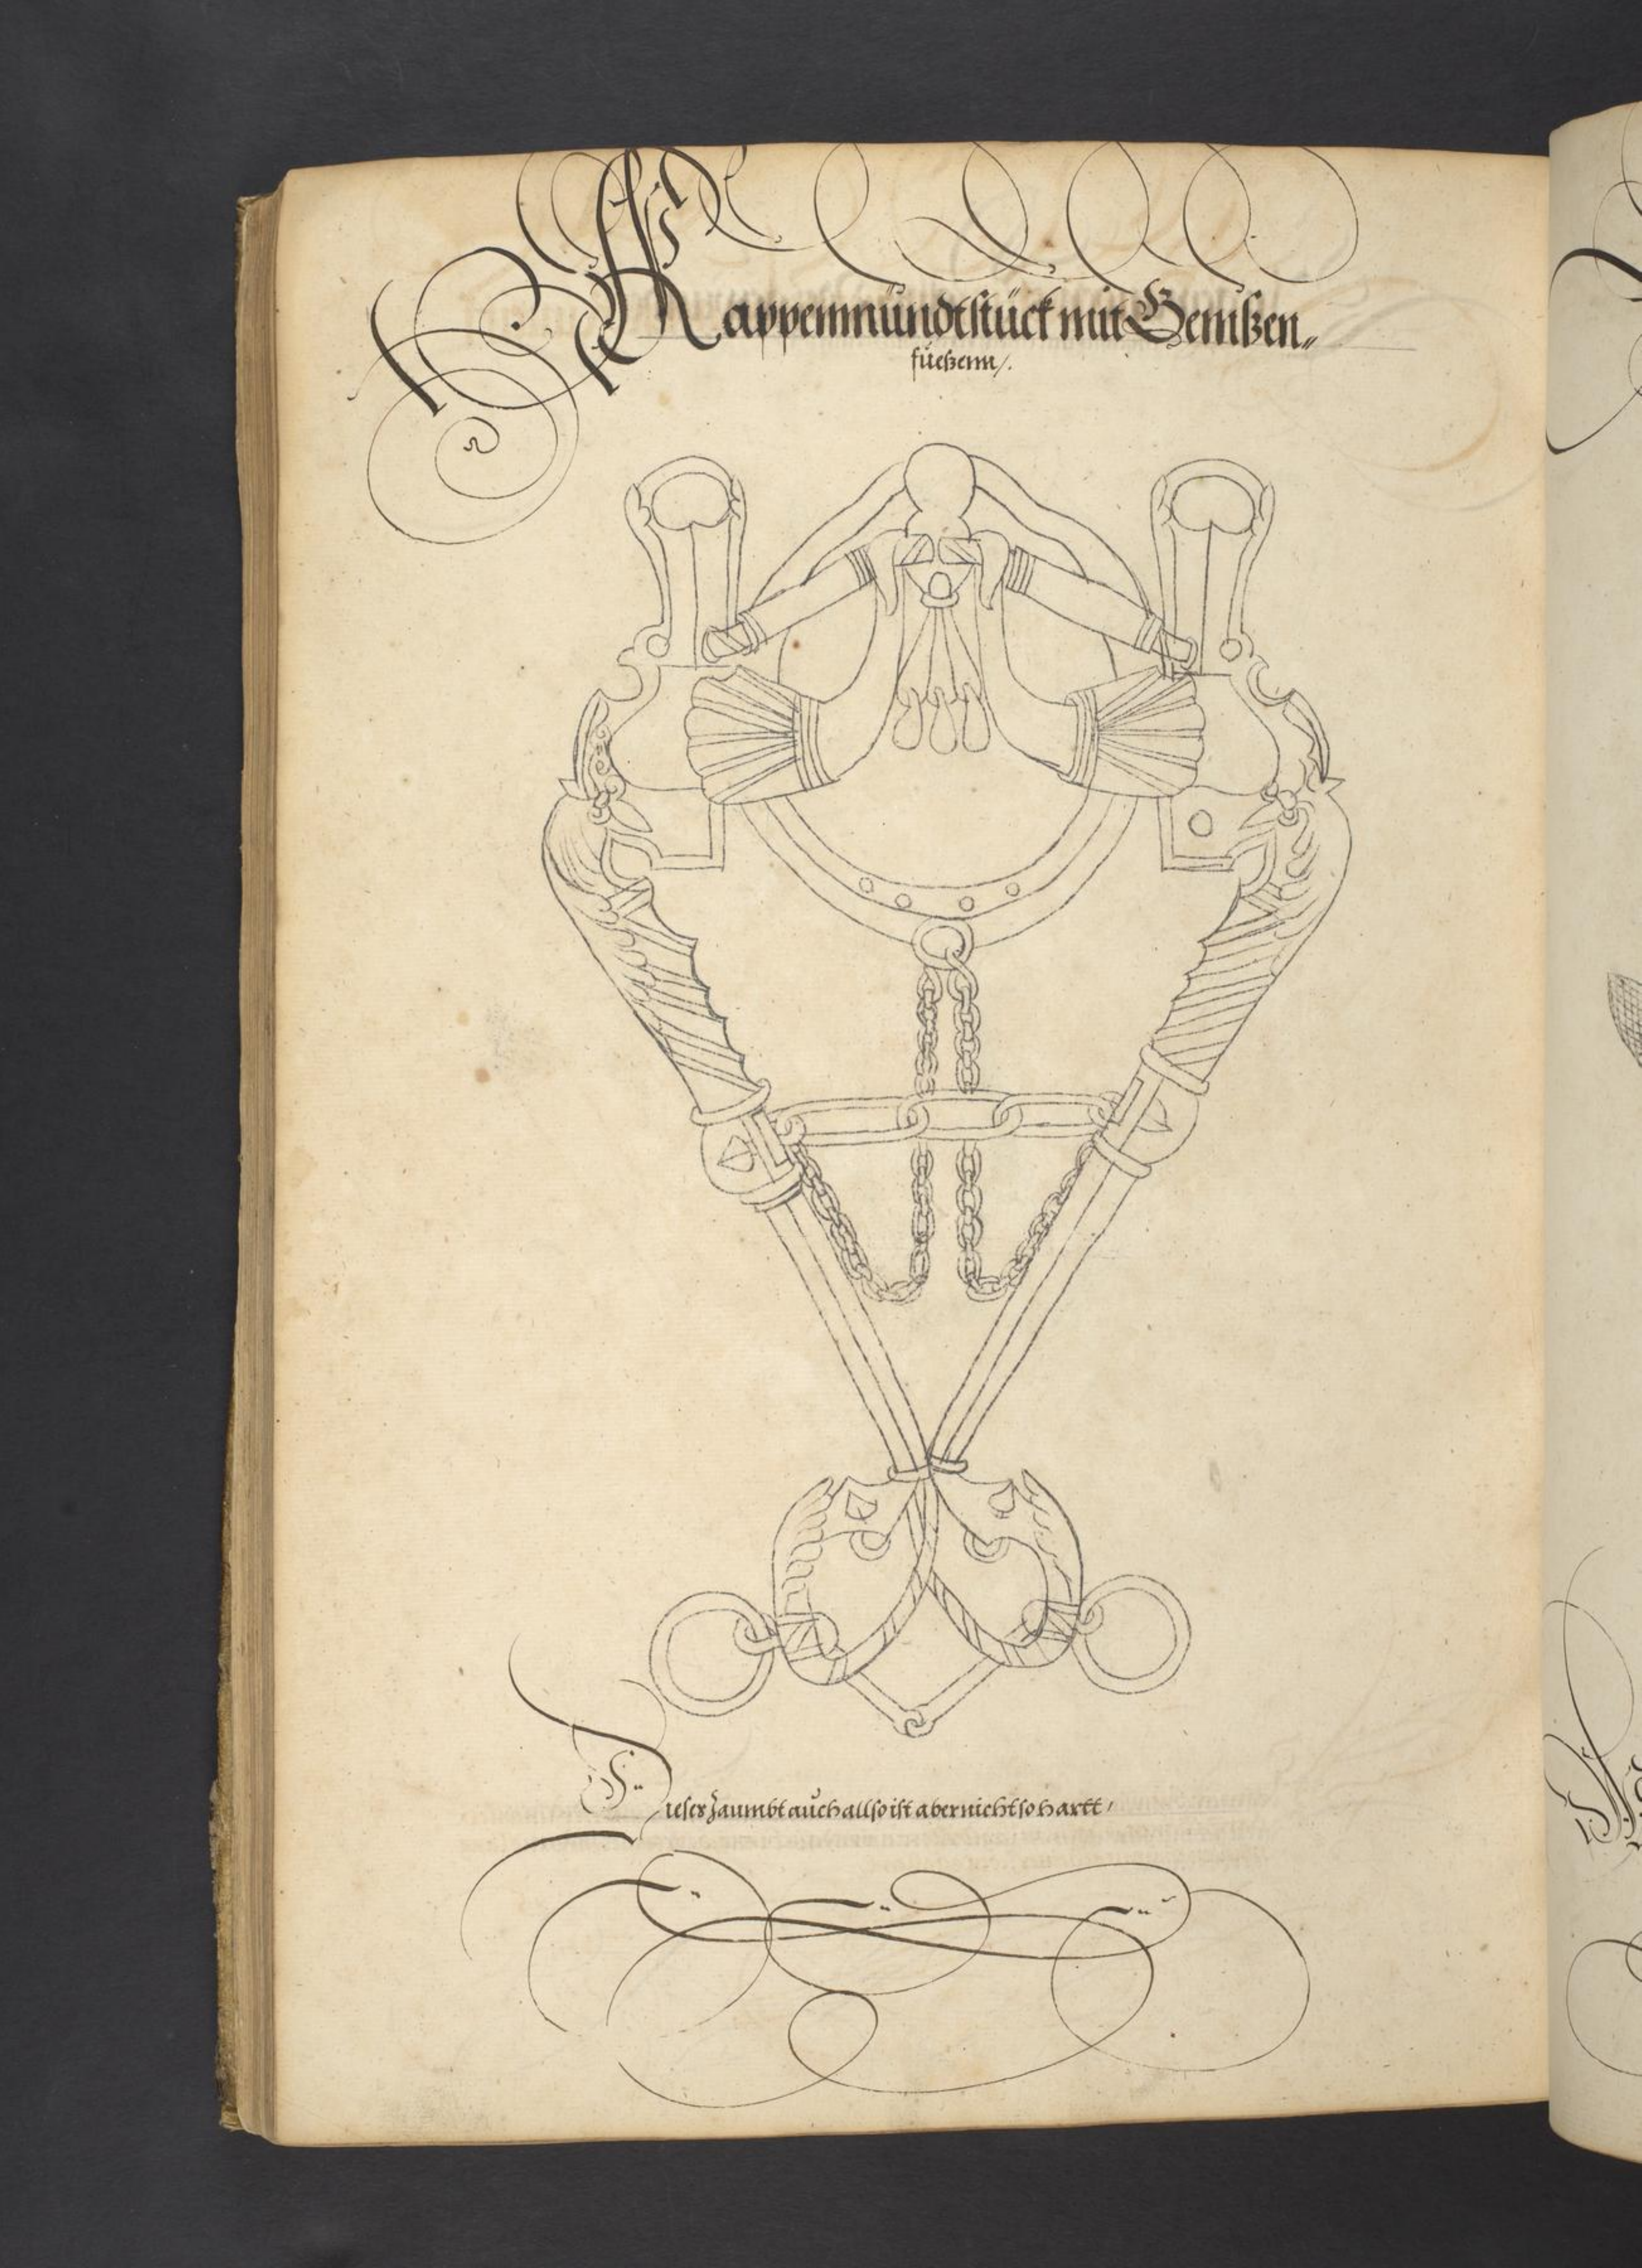 Kappenmündtstück mit Gemßen„
füeßenn/.
Dieser Zaumbt aůch allso ist aber nicht so hartt,